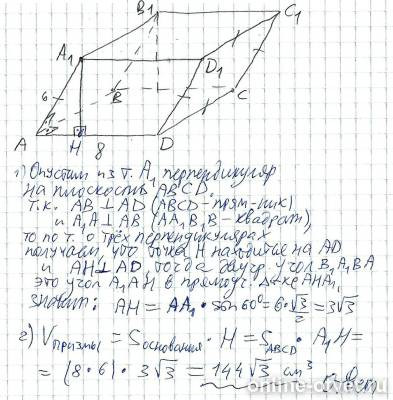 B1 C1
A1 D1
6 B C
A H 8 D
1) Опустим из т. A1 перпендикуляр
на плоскость ABCD.
Т.к. AB ⊥ AD (ABCD - прям-ник)
и A1A ⊥ AB (AA1B1B - квадрат),
то по т. о трёх перпендикулярах
получаем, что точка H находится на AD
и AH ⊥ AD, тогда двугр. угол B1A1BA
это угол A1AH в прямоуг. Δ-ке AHA1,
значит: AH = AA1 · sin 60° = 6 · √3/2 = 3√3
2) Vпризмы = Sоснования · H = SABCD · A1H =
= (8 · 6) · 3√3 = 144√3 см³
online-otvet.ru